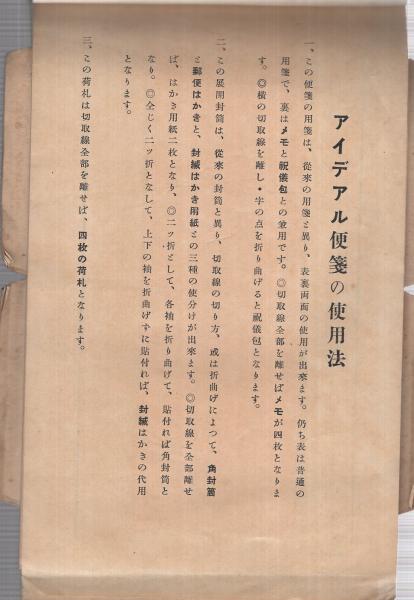 アイデアル便箋の使用法
一、この便箋の用箋は、從來の用箋と異り、表裏両面の使用が出來ます。仍ち表は普通の
用箋で、裏はメモと祝儀包との兼用です。◎切取線全部を離せばメモが四枚となりま
す。◎横の切取線を離し・字の点を折り曲げると祝儀包となります。
二、この展開封筒は、從來の封筒と異り、切取線の切り方、或は折曲げによつて、角封筒
と郵便はかきと、封緘はかき用紙との三種の使分けが出來ます。◎切取線を全部離せ
ば、はかき用紙二枚となり、◎二ッ折として、各袖を折り曲げて、貼付れば角封筒と
なり。◎全じく二ッ折となして、上下の袖を折曲げずに貼付れば、封緘はかきの代用
となります。
三、この荷札は切取線全部を離せば、四枚の荷札となります。